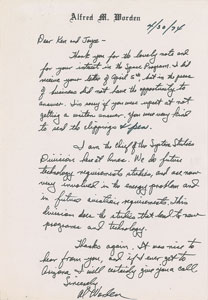 Alfred M. Worden
4/30/74
Dear Ken and Joyce -
Thank you for the lovely note and
for your interest in the Space Program. I did
receive your letter of April 5th, but in the press
of business did not have the opportunity to
answer. I'm sorry if you were upset at not
getting a written answer. You were very kind
to send the clippings & pen.
I am the Chief of the Systems Studies
Division here at Ames. We do future
technology requirements studies, and are now
very involved in the energy problem and
in future aviation requirements. This
division does the studies that lead to new
programs and technology.
Thanks again. It was nice to
hear from you, and if I ever get to
Arizona, I will certainly give you a call.
Sincerely
Al Worden